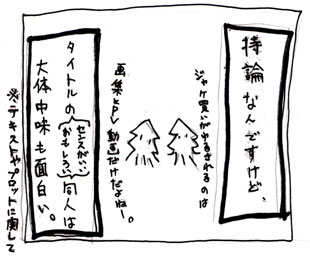 持論なんですけど、
ジャケ買いがゆるされるのは
画集とPV動画だけだよねー。
タイトルの{センスがいい おもしろい}同人は
大体中味も面白い。
※テキストやプロットに関して